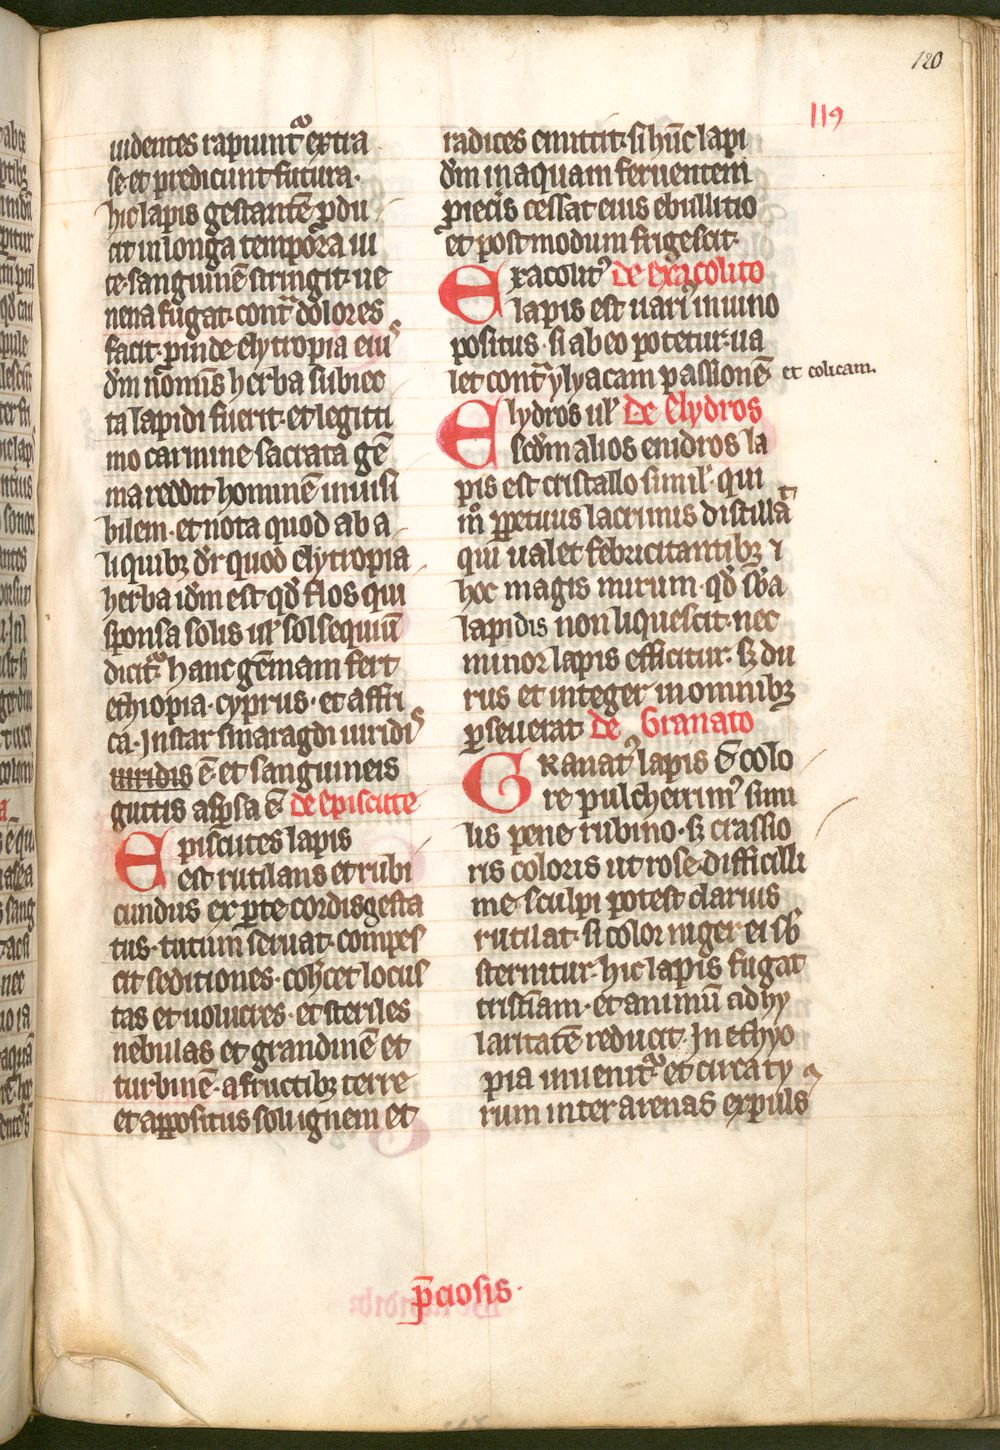 120
119
uidentes rapiuntᷓ extra
se·et predicunt futura·
hic lapis gestantē ꝓdu
cit in longa tempora ui
te·sanguinē stringit·ue
nena fugat·contᷓ dolores
facit·pinde elytropia eiꝰ
dm̄ nōmīs herba subiec
ta lapidi fuerit·et legitti
mo carmine sacrata gē
ma reddit hominē inuisi
bilem·et nota quod ab a
liquibꝫ dr̄ quod elytropia
herba idm̄ est qd̄ flos qui
sponsa solis ul' solsequiū
dicitᷓ hanc gēmam fert
ethiopia·cyprus·et affri
ca·Instar smaragdi uiridiˢ
uiridis ē·et sanguineis
guttis asp̱sa ē de episcite
Episcites lapis
est rutilans et rubi
cundus ex ꝑte cordis gesta
tus·tutum seruat·compes
cit seditiones·coħcet locus
tas et uolucres·et steriles
nebulas et grandinē et
turbinē·a fructibꝫ terre
et appositus soli ignem et
radices emittit·si hūc lapi
dm̄ in aquam feruentem
ꝓiecis cessat eius ebullitio
et postmodum frigescit·
Exacolitꝰ de exacolito
lapis est uariꝰ in uino
positus·si ab eo potetur·ua
let contᷓ ylyacam passionē et colicam.
Elydros ul' De elydros
scdm̄ alios enidros la
pis est cristallo simil'·qui
in̄ ꝑpetuus lacrimis distillaᵗ
qui ualet febricitantibꝫ ⁊
hoc magis mirum·qd̄ sb̄a
lapidis non liquescit·nec
minor lapis efficitur·sꝫ du
rus et integer in omnibꝫ
ꝑseuerat de Granato
Granatꝰ lapis ē colo
re pulcherrimꝰ simi
lis pene rubino·sꝫ crassio
ris coloris ut rose·difficilli
me sculpi potest clarius
rutilat·si color niger ei sb̄
sternitur·hic lapis fugat
tristiam·et animū ad hy
laritatē reducit·In ethyo
pia inuenitᷓ et circa ty
rum inter arenas expuls
p̄ciosis·